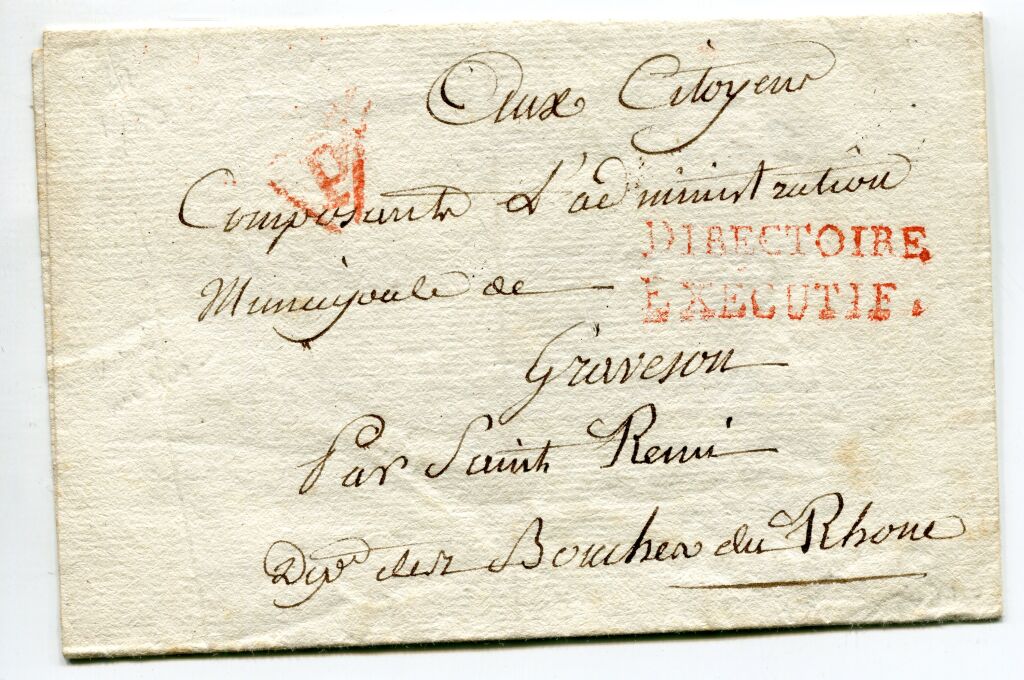 Aux Citoyens
P
Composants L'administration
DIRECTOIRE
Municipale de
EXECUTIF.
Graveson
Par Saint Remi
Dép.t des Bouches du Rhone